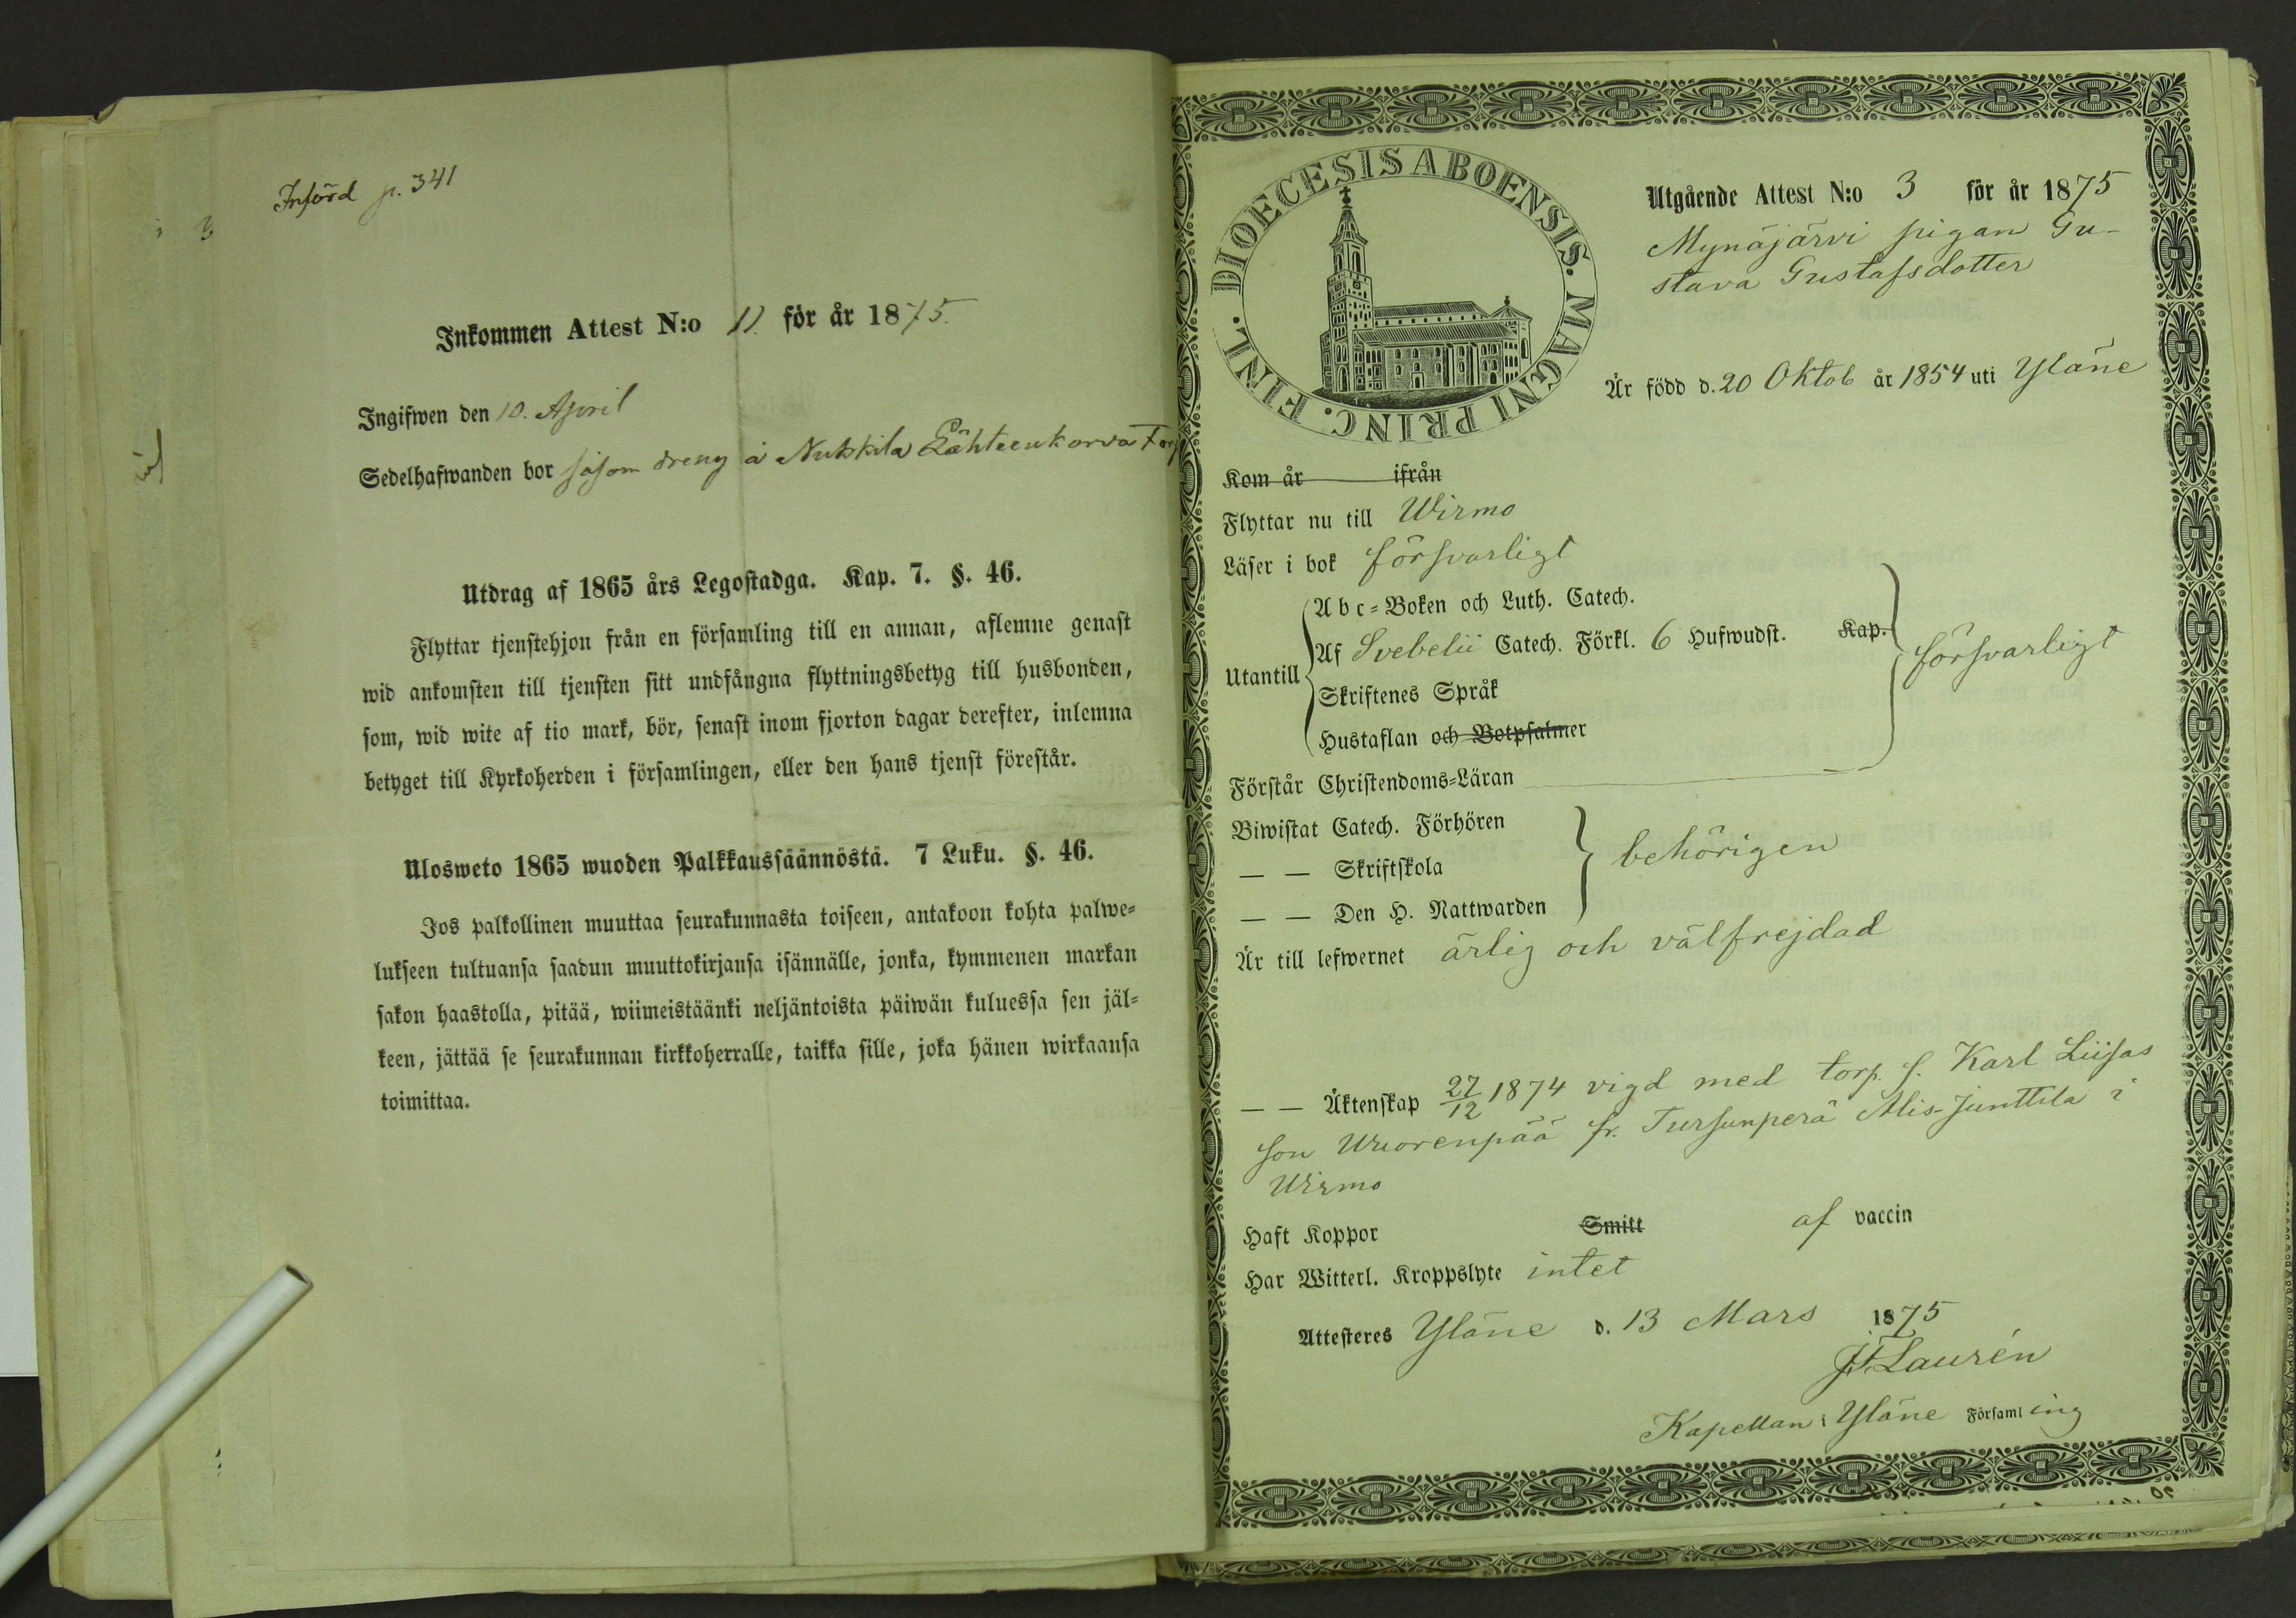 Införd p. 341
Inkommen Attest N:o 11. för år 1875.
Ingifwen den 10. April
Sedelhafwanden bor såsom dreng å Nukkila Lähteenkorva Torp
Utdrag af 1865 års Legostadga. Kap. 7. §. 46.
Flyttar tjenstehjon från en församling till en annan, aflemne genast
wid ankomsten till tjensten sitt undfångna flyttningsbetyg till husbonden,
som, wid wite af tio mark, bör, senast inom fjorton dagar derefter, inlemna
betyget till Kyrkoherden i församlingen, eller den hans tjenst förestår.
Ulosweto 1865 wuoden Palkkaussäännöstä. 7 Luku. §. 46.
Jos palkollinen muuttaa seurakunnasta toiseen, antakoon kohta palwe-
lukseen tultuansa saadun muuttokirjansa isännälle, jonka, kymmenen markan
sakon haastolla, pitää, wiimeistäänki neljäntoista päiwän kuluessa sen jäl-
keen, jättää se seurakunnan kirkkoherralle, taikka sille, joka hänen wirkaansa
toimittaa.
DIOECESIS ABOENSIS. MAGNI PRINC. FINL.
Utgående Attest N:o 3 för år 1875
Mynäjärvi pigan Gu-
stava Gustafsdotter
Är född d. 20 Oktob år 1854 uti Yläne
Kom år ifrån
Flyttar nu till Wirmo
Läser i bok försvarligt
Utantill
Abc-Boken och Luth. Catech.
Af Svebelii Catech. Förkl. 6 Hufwudst. Kap.
försvarligt
Skriftenes Språk
Hustaflan och Botpsalmer
Förstår Christendoms-Läran
Biwistat Catech. Förhören
— — Skriftskola
behörigen
— — Den H. Nattwarden
Är till lefwernet ärlig och välfrejdad
— — Äktenskap 27/12 1874 vigd med torp. s. Karl Liisas
son Wuorenpää fr. Tursunperä Alis-Junttila i
Wirmo
Haft Koppor Smitt af vaccin
Har Witterl. Kroppslyte intet
Attesteres Yläne d. 13 Mars 1875
Laurén
Kapellan i Yläne Församling